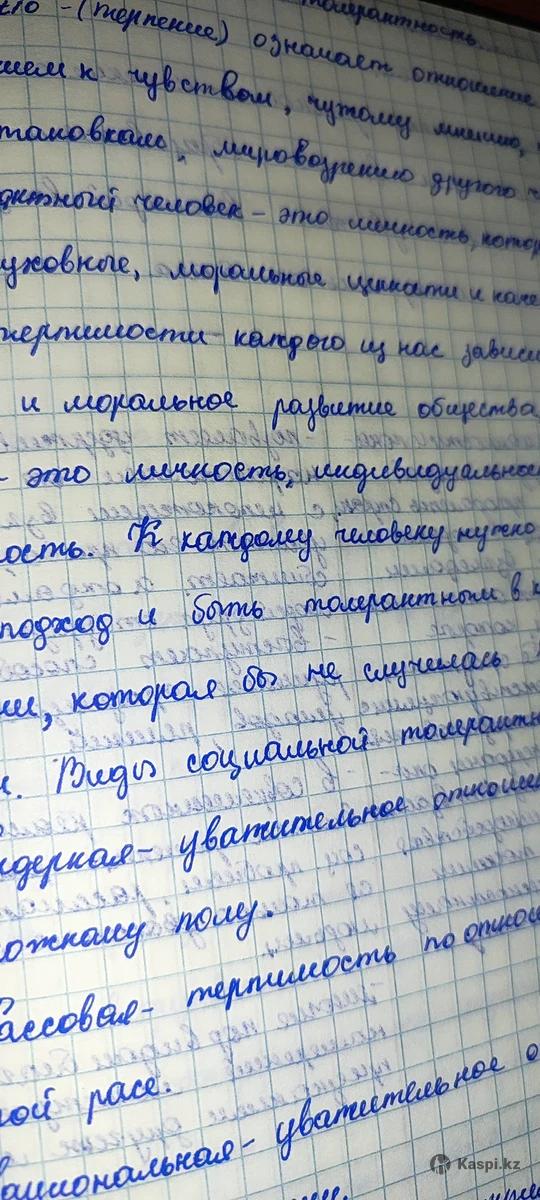 толерантность.
tio - (терпение) означает отношение
ием к чувствам, чужому мнению,
тановкам, мировозрению другого
антный человек - это личность, котор
уховные, моральные ценности и каче
терпимости каждого из нас зависи
и моральное развитие общества
- это личность, индивидуально
ость. К каждому человеку нужно
подход и быть толерантным в к
ии, которая бы не случилась
и. Виды социальной толерантн
ндерная - уважительное отноше
ожному полу.
ассовая - терпимость по отно
ной расе.
ациональная - уважительное о
Kaspi.kz